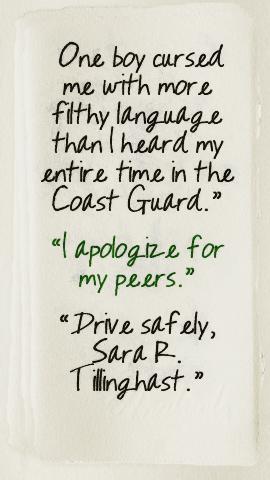 One boy cursed
me with more
filthy language
than I heard my
entire time in the
Coast Guard."
"I apologize for
my peers."
"Drive safely,
Sara R.
Tillinghast."